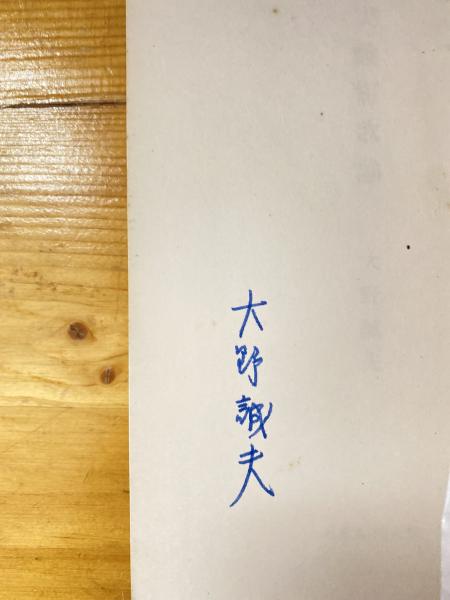 大野誠夫